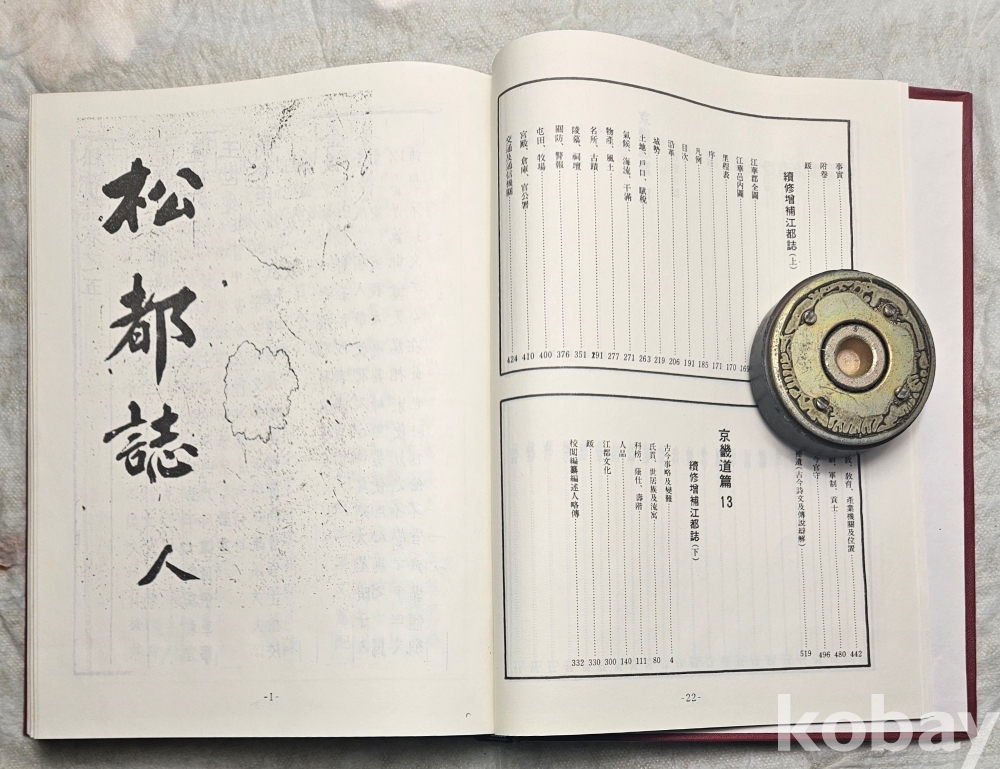 事實
附卷
跋
續修增補江都誌(上)
江華郡全圖
江華邑內圖 169
里程表 170
序 171
凡例 185
目次 191
沿革 206
域勢 219
土地、戶口、賦稅 263
氣候、海流、干滿 271
物產、風土 277
名所、古蹟 291
陵墓、祠壇 351
關防、警報 376
屯田、牧場 400
宮殿、倉庫、官公署 410
交通及通信機關 424
教育、產業機關及位置 442
軍制、貢士 480
官守 496
遺(古今詩文及傳說辯解) 519
京畿道篇 13
續修增補江都誌(下)
古今事略及變難 4
氏貫、世居族及流寓 80
科榜、蔭仕、壽階 111
人品 140
江都文化 300
跋 330
校閱編纂編述人略傳 332
-22-
松都誌 人
-1-
kobay